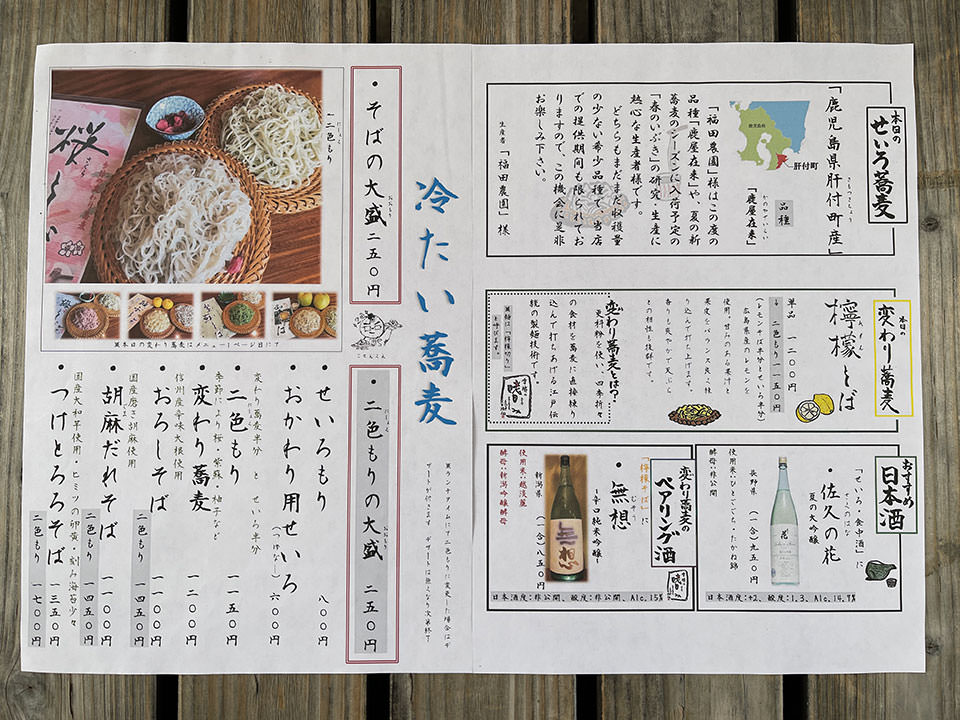 本日の
せいろ蕎麦
「鹿児島県肝付町産」
きもつきちょう
鹿児島県
肝付町
品種
「鹿屋在来」
かのやざいらい
「福田農園」様はこの度の
品種「鹿屋在来」や、夏の新
蕎麦のシーズンに入荷予定の
「春のいぶき」の研究・生産に
熱心な生産者様です。
どちらもまだまだ収穫量
の少ない希少品種で、当店
での提供期間も限られてお
りますので、この機会に是非
お楽しみ下さい。
生産者 「福田農園」様
本日の
変わり蕎麦
檸檬そば
単品 一二〇〇円
(レモンそば半分とせいろ半分)
二色もり 一一五〇円
広島県産のレモンを
使用。甘みのある果汁と
果皮をバランス良く練
り込んで打ち上げます。
香りも爽やかで天ぷら
との相性も抜群です。
変わり蕎麦とは?
更科粉を使い、四季折々
の食材を蕎麦に直接練り
込んで打ちあげる江戸伝
統の製麺技術です。
※麺は「檸檬切り」
と呼びます。
おすすめ
日本酒
「せいろ・食中酒」
・佐久の花
さくのはな
夏の大吟醸
長野県 (一合)九五〇円
使用米:ひとごこち・たかね錦
酵母:非公開
日本酒度:+2、酸度:1.3、Alc.14.9%
変わり蕎麦の
ペアリング酒
「檸檬そば」に
・無想
むそう
~辛口純米吟醸~
新潟県 (一合)八五〇円
使用米:越淡麗
酵母:新潟吟醸酵母
日本酒度:非公開、酸度:非公開、Alc.15%
冷たい蕎麦
・そばの大盛 二五〇円
おおもり
二色もり
にしょく
※本日の変わり蕎麦はメニュー1ページ目にて
・二色もりの大盛 二五〇円
にしょく
おおもり
※ランチタイムに二色もりに変更した場合はデ
ザートが付きます。デザートは無くなり次第終了
・せいろもり 八〇〇円
・おかわり用せいろ
(つゆなし) 六〇〇円
変わり蕎麦半分 と せいろ半分
・二色もり 一一五〇円
にしょく
季節により桜・紫蘇・柚子など
・変わり蕎麦 一二〇〇円
信州産辛味大根使用
・おろしそば 一一五〇円
二色もり 一四五〇円
国産磨きごま胡麻使用
・胡麻だれそば 一一〇〇円
二色もり 一四五〇円
国産大和芋使用・ヒミツの卵黄・刻み海苔少々
・つけとろろそば 一三五〇円
二色もり 一七〇〇円